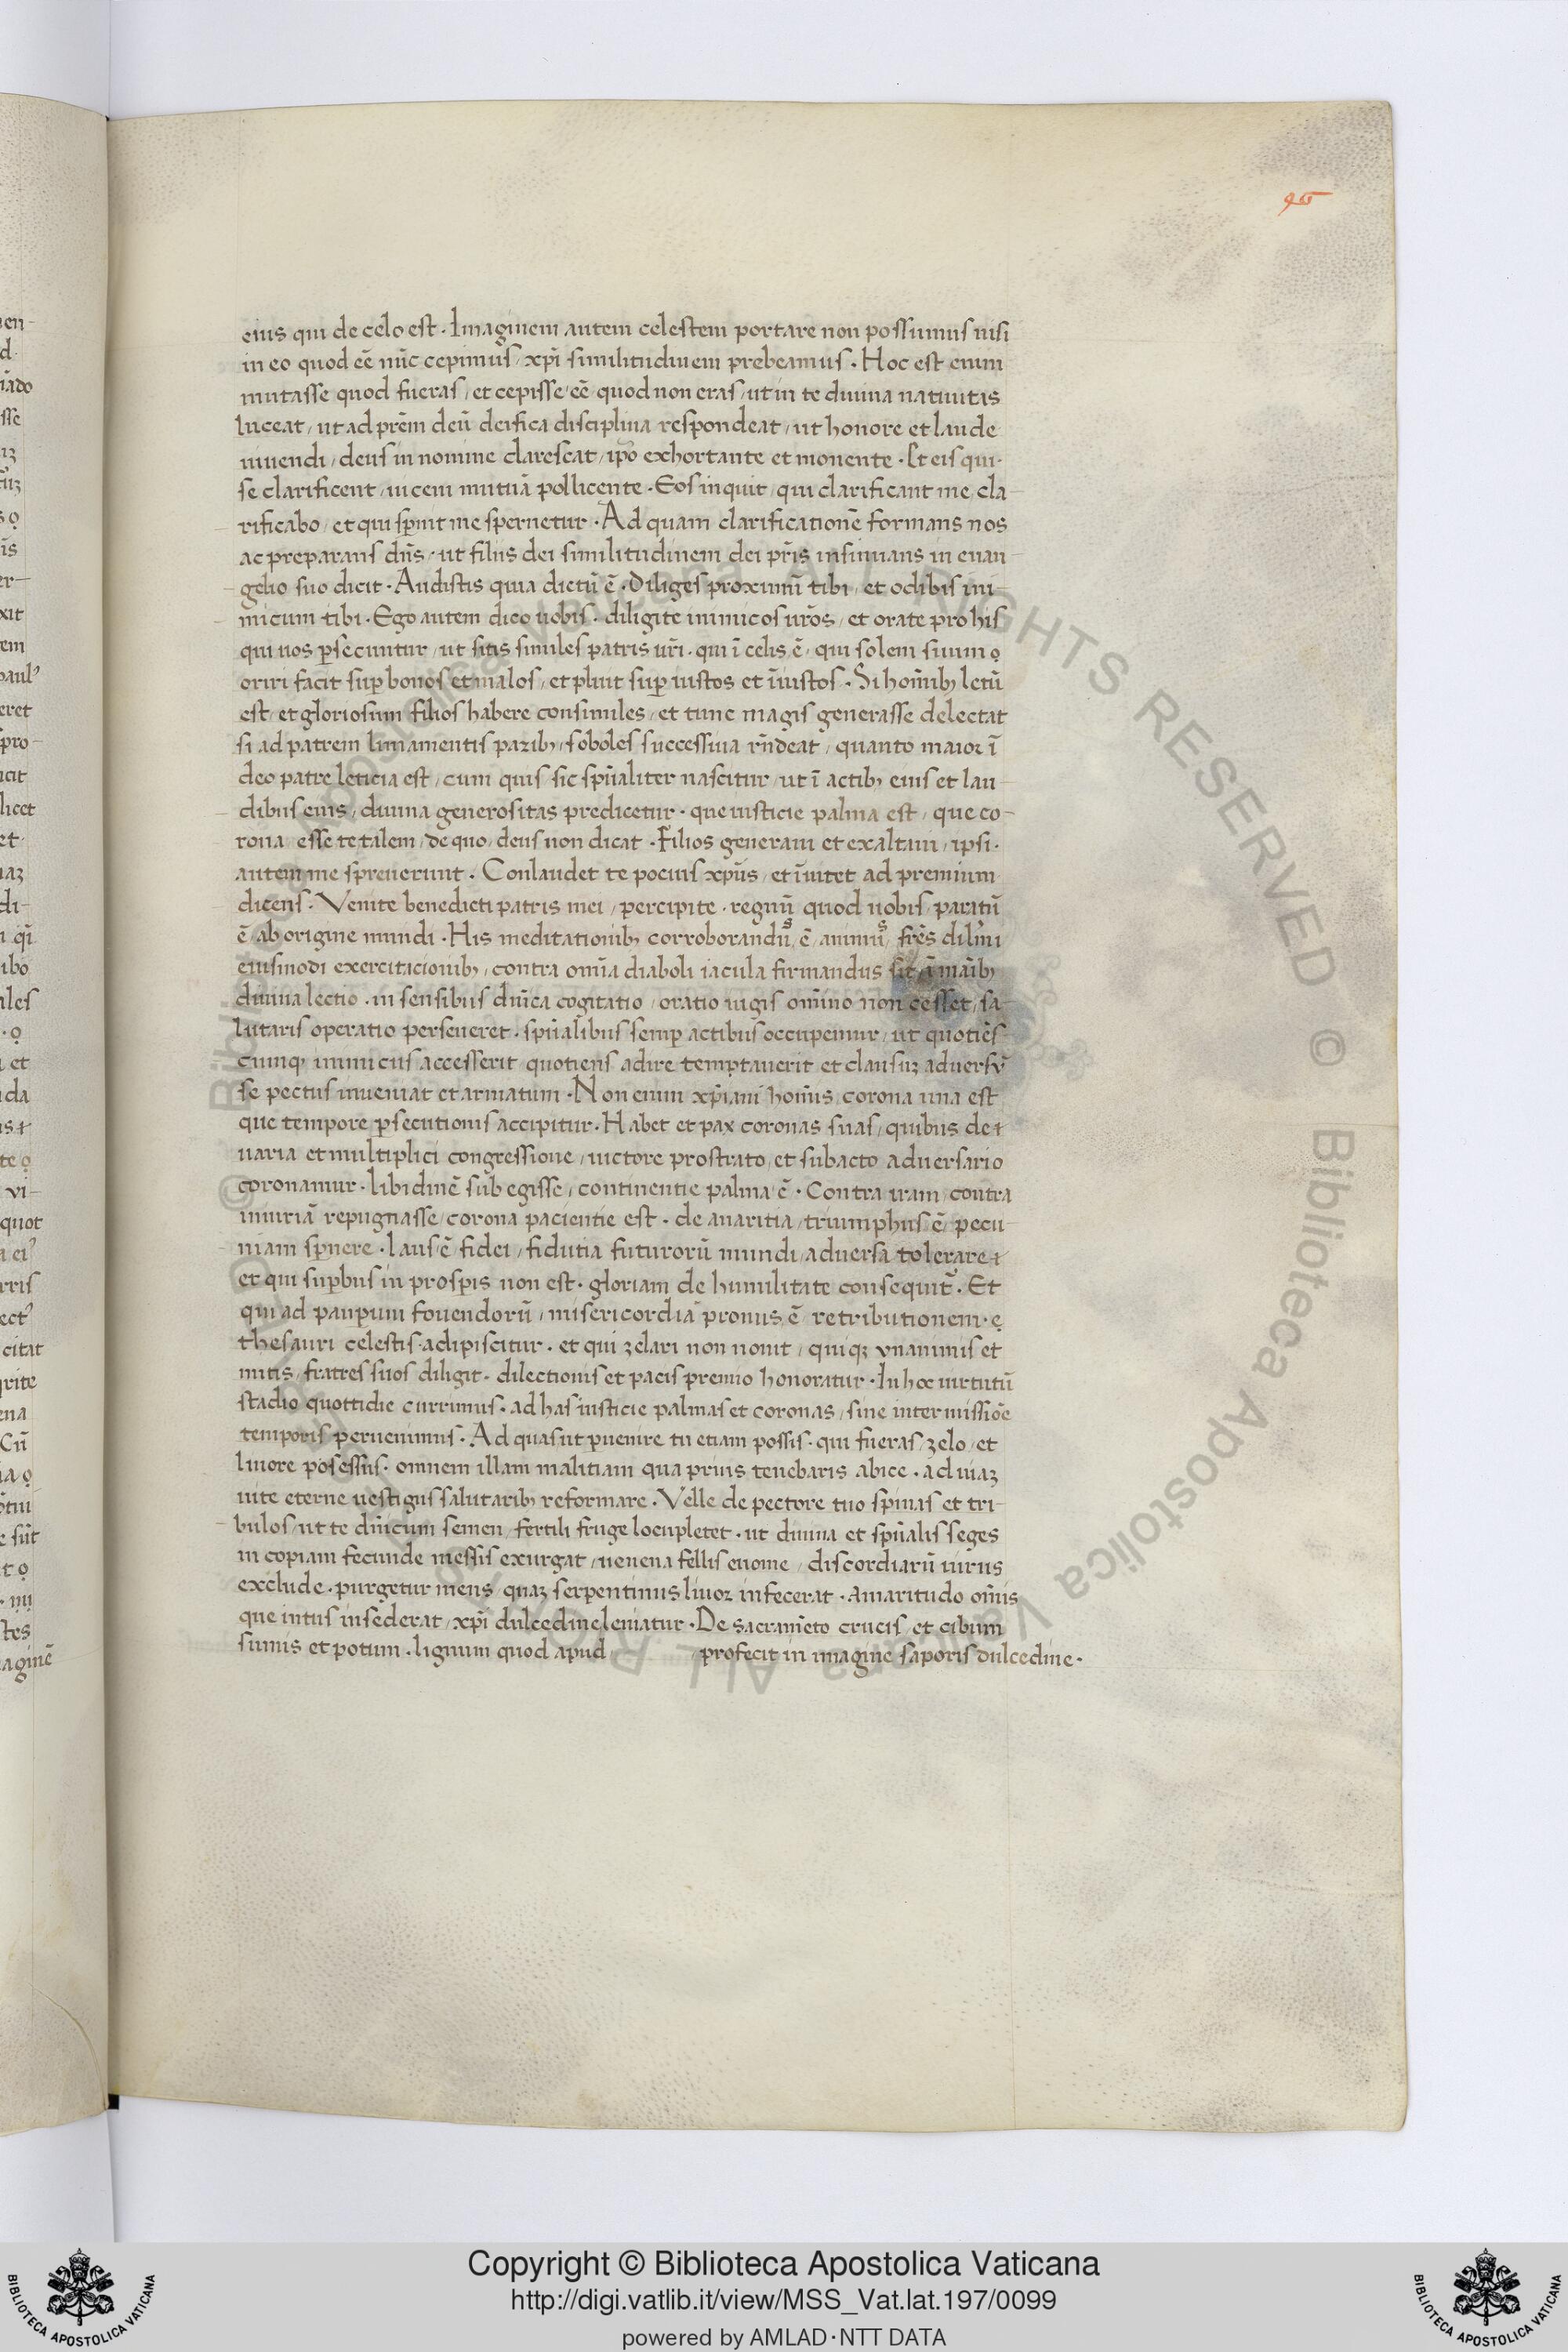 95
eius qui de celo est · Imaginem autem celestem portare non possumus nisi
in eo quod eē nūc cepimus / xp̄i similitudinem prebeamus · Hoc est enim
mutasse quod fueras / et cepisse eē quod non eras / ut in te diuina natiuitas
luceat / ut ad prēm deū deifica disciplina respondeat / ut honore et laude
uiuendi / deus in nomine clarescat / ip̄o exhortante et monente · Et eis qui ·
se clarificent / uicem mutuā pollicente · Eos inquit / qui clarificant me / cla
rificabo / et qui sp̱nūt me spernetur · Ad quam clarificationē formans nos
ac preparans dn̄s · ut filius dei similitudinem dei pr̄is insinuans in euan
gelio suo dicit · Audistis quia dictū ē · Diliges proximū tibi / et odibis ini
micum tibi · Ego autem dico uobis · diligite inimicos ur̄os / et orate pro his
qui uos p̱secuntur / ut sitis similes patris ur̄i · qui ī celis ē / qui solem suum
oriri facit sup̱ bonos et malos / et pluit sup̱ iustos et īiustos · Si hoīnib; letū
est / et gloriosum filios habere consimiles / et tunc magis generasse delectat
si ad patrem liniamentis parib; / soboles successiua rn̄deat / quanto maior ī
deo patre leticia est / cum quis sic spūaliter nascitur / ut ī actib; eius et lau
dibus eius / diuina generositas predicetur · que iusticie palma est / que co-
rona esse te talem / de quo / deus non dicat · Filios generaui et exaltaui / ipsi ·
autem me spreuerunt · Conlaudet te pocius xp̄us / et īuitet ad premium
dicens · Venite benedicti patris mei / percipite · regnū quod uobis / paratū
ē ab origine mundi · His meditationib; corroborandus̄ ē / animus̄ / frēs dilm̄i
eiusmodi exerciticionib; / contra omīa diaboli iacula firmandus sit ī manib;
diuina lectio · in sensibus dn̄ica cogitatio / oratio iugis om̄ino non cesset / sa-
lutaris operatio perseueret · spūalibus semp̱ actibus occupemur / ut quotiēs
cumq; inimicus accesserit quotiens adire temptauerit et clausuꝫ aduersū
se pectus inueniat et armatum · Non enim xp̄iani hoīnis corona una est
que tempore p̱secutionis accipitur · Habet et pax coronas suas / quibus de
uaria et multiplici congressione / uictore prostrato / et subacto aduersario
coronamur · libidinē subegisse / continentie palma ē · Contra iram / contra
iniuriā repugnasse / corona pacientie est · de auaritia / triumphus ē / pecu-
niam sp̱nere · laus ē fidei / fidutia futurorū mundi / aduersa tolerare
et qui sup̱bus in prosp̱is non est · gloriam de humilitate consequit̄ · Et
qui ad paup̱um fouendorū / misericordiā pronus ē retributionem ·
thesauri celestis · adipiscitur · et qui zelari non nouit / quiqꝫ vnanimis et
mitis / fratres suos diligit · dilectionis et pacis premio honoratur · In hoc uirtutū
stadio quottidie currimus · ad has iusticie palmas et coronas / sine intermissiōe
temporis peruenimus · Ad quas ut p̱uenire tu etiam possis · qui fueras / zelo / et
liuore posessus · omnem illam malitiam qua prius tenebaris abice · ad uiaꝫ
uite eterne uestigiis salutarib; reformare · Velle de pectore tuo spinas et tri-
bulos / ut te dn̄icum semen / fertili fruge locupletet · ut diuina et spūalis seges
in copiam fecunde messis exurgat / uenena fellis euome / discordiarū uirus
exclude · purgetur mens quaꝫ serpentinus liuor infecerat · amaritudo om̄is
que intus insederat / xp̄i dulcedine leniatur · De sacramēto crucis et cibum
sumis et potum · lignum quod apud / / profecit in imagine saporis dulcedine ·
Copyright © Biblioteca Apostolica Vaticana
http://digi.vatlib.it/view/MSS_Vat.lat.197/0099
powered by AMLAD·NTT DATA
BIBLIOTECA APOSTOLICA VATICANA
BIBLIOTECA APOSTOLICA VATICANA